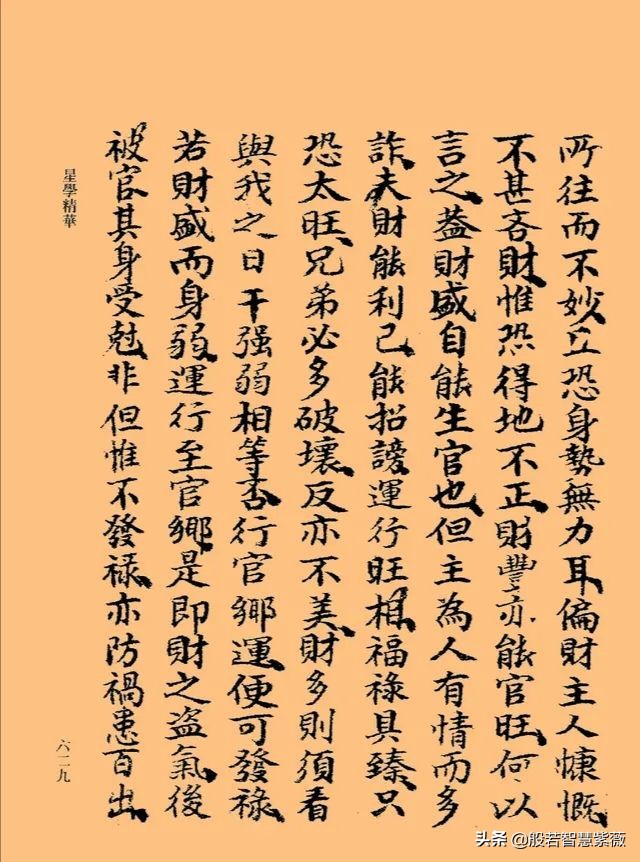 所往而不妙正恐身勢無力耳偏財主人慷慨
不甚吝財惟恐得地不正財豐亦能官旺何以
言之蓋財盛自能生官也但主為人有情而多
詐夫財能利己能招謗運行旺相福祿具臻只
恐太旺兄弟必多破壞反亦不美財多則須看
與我之日干强弱相等否行官鄉運便可發祿
若財盛而身弱運行至官鄉是即財之盜氣後
被官其身受尅非但惟不發祿亦防禍患百出
星學精華
六二九
头条 @般若智慧紫薇